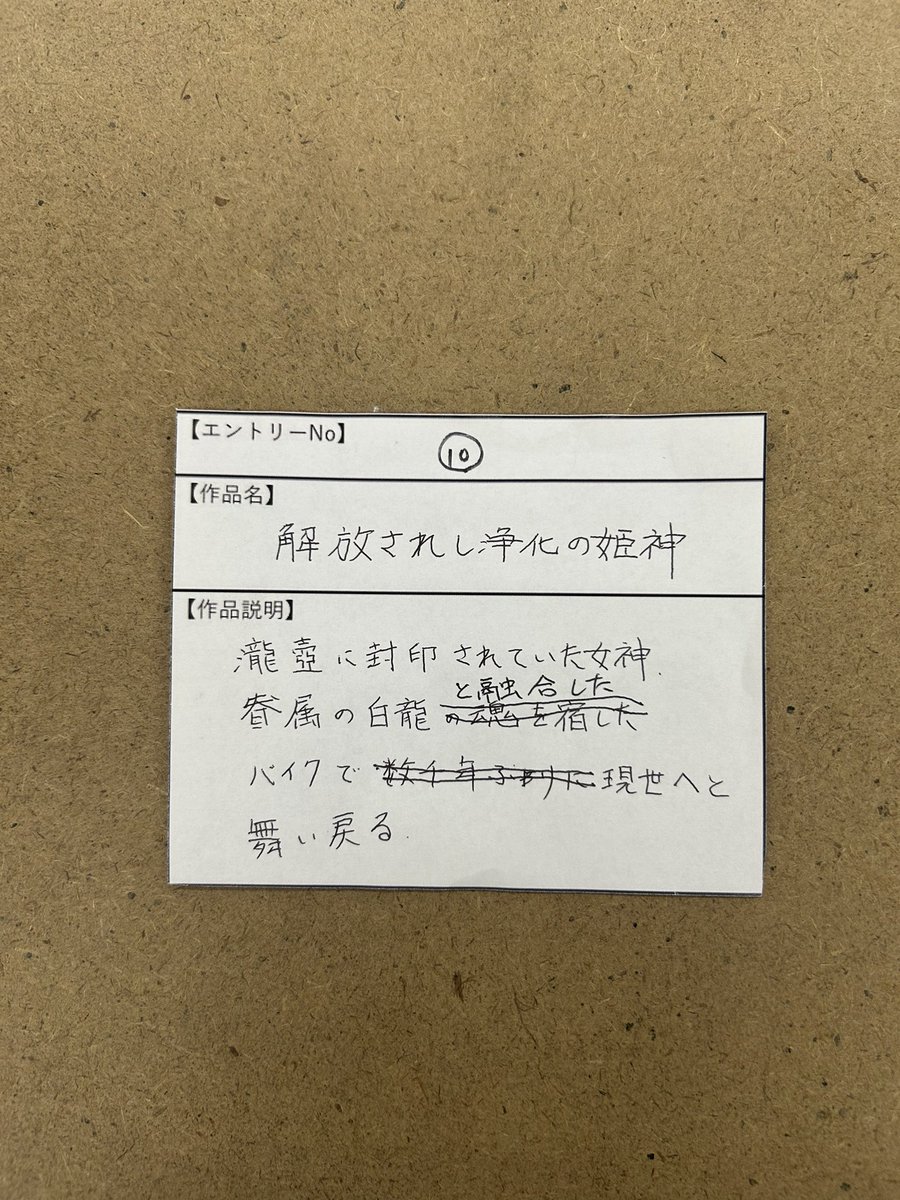 【エントリーNo】
⑩
【作品名】
解放されし浄化の姫神
【作品説明】
瀧壺に封印されていた女神
と融合した
眷属の白龍の魂を宿した
バイクで数千年ぶりに現世へと
舞い戻る.